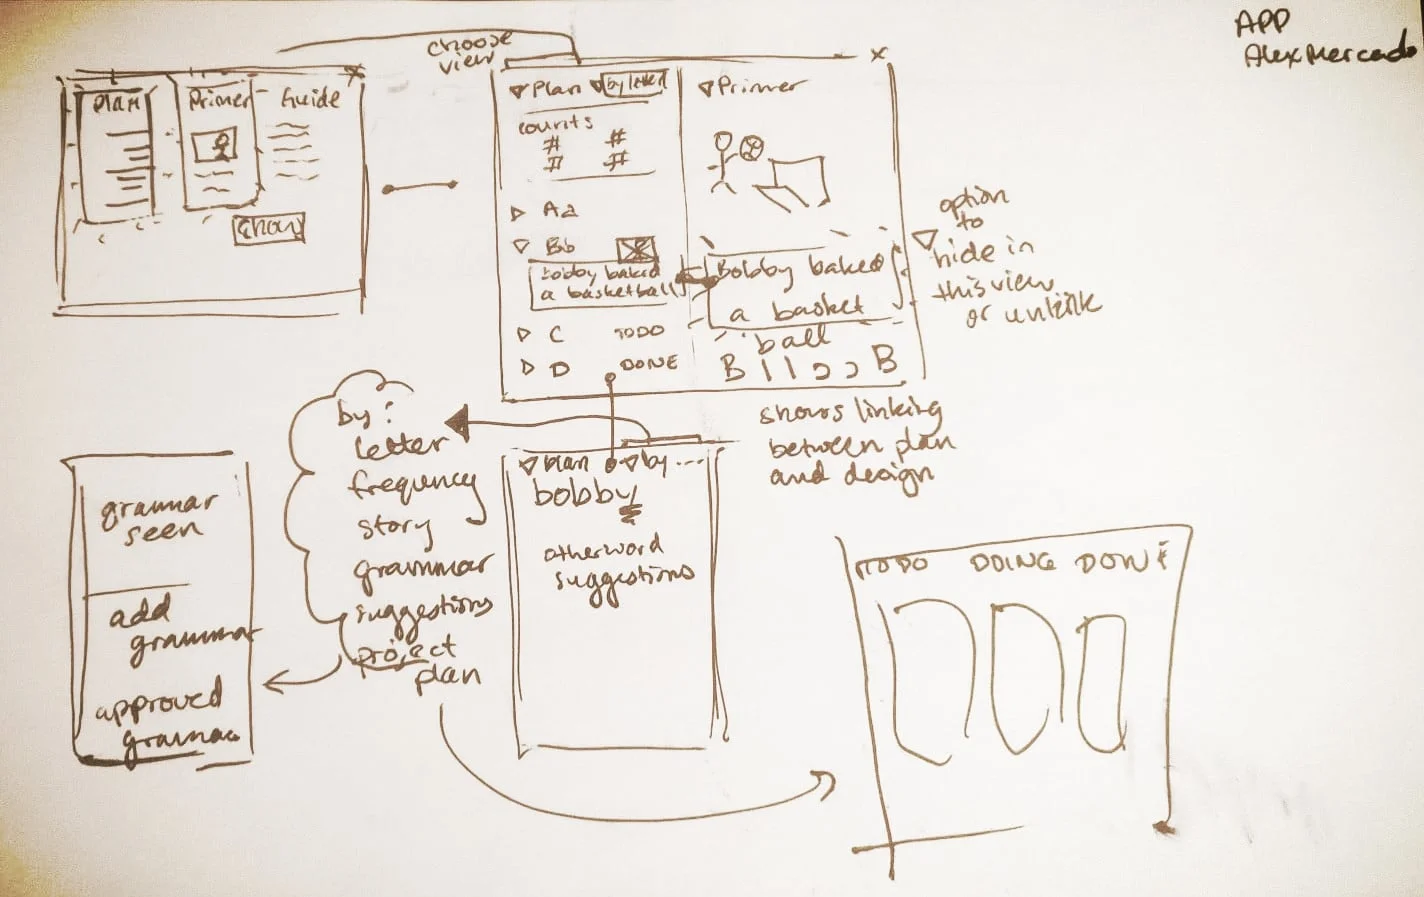 APP
Alex Mercado
choose
view
Plan
Primer
Guide
Show
Plan
by letter
counts
# #
# #
Aa
Bb
bobby baked
a basketball
C TODO
D DONE
Primer
Bobby baked
a basket
ball
B B
option
to
hide in
this view
or unlink
shows linking
between plan
and design
by:
letter
frequency
story
grammar
suggestions
project
plan
grammar
seen
add
grammar
approved
grammar
plan by ...
bobby
other word
suggestions
TODO DOING DONE